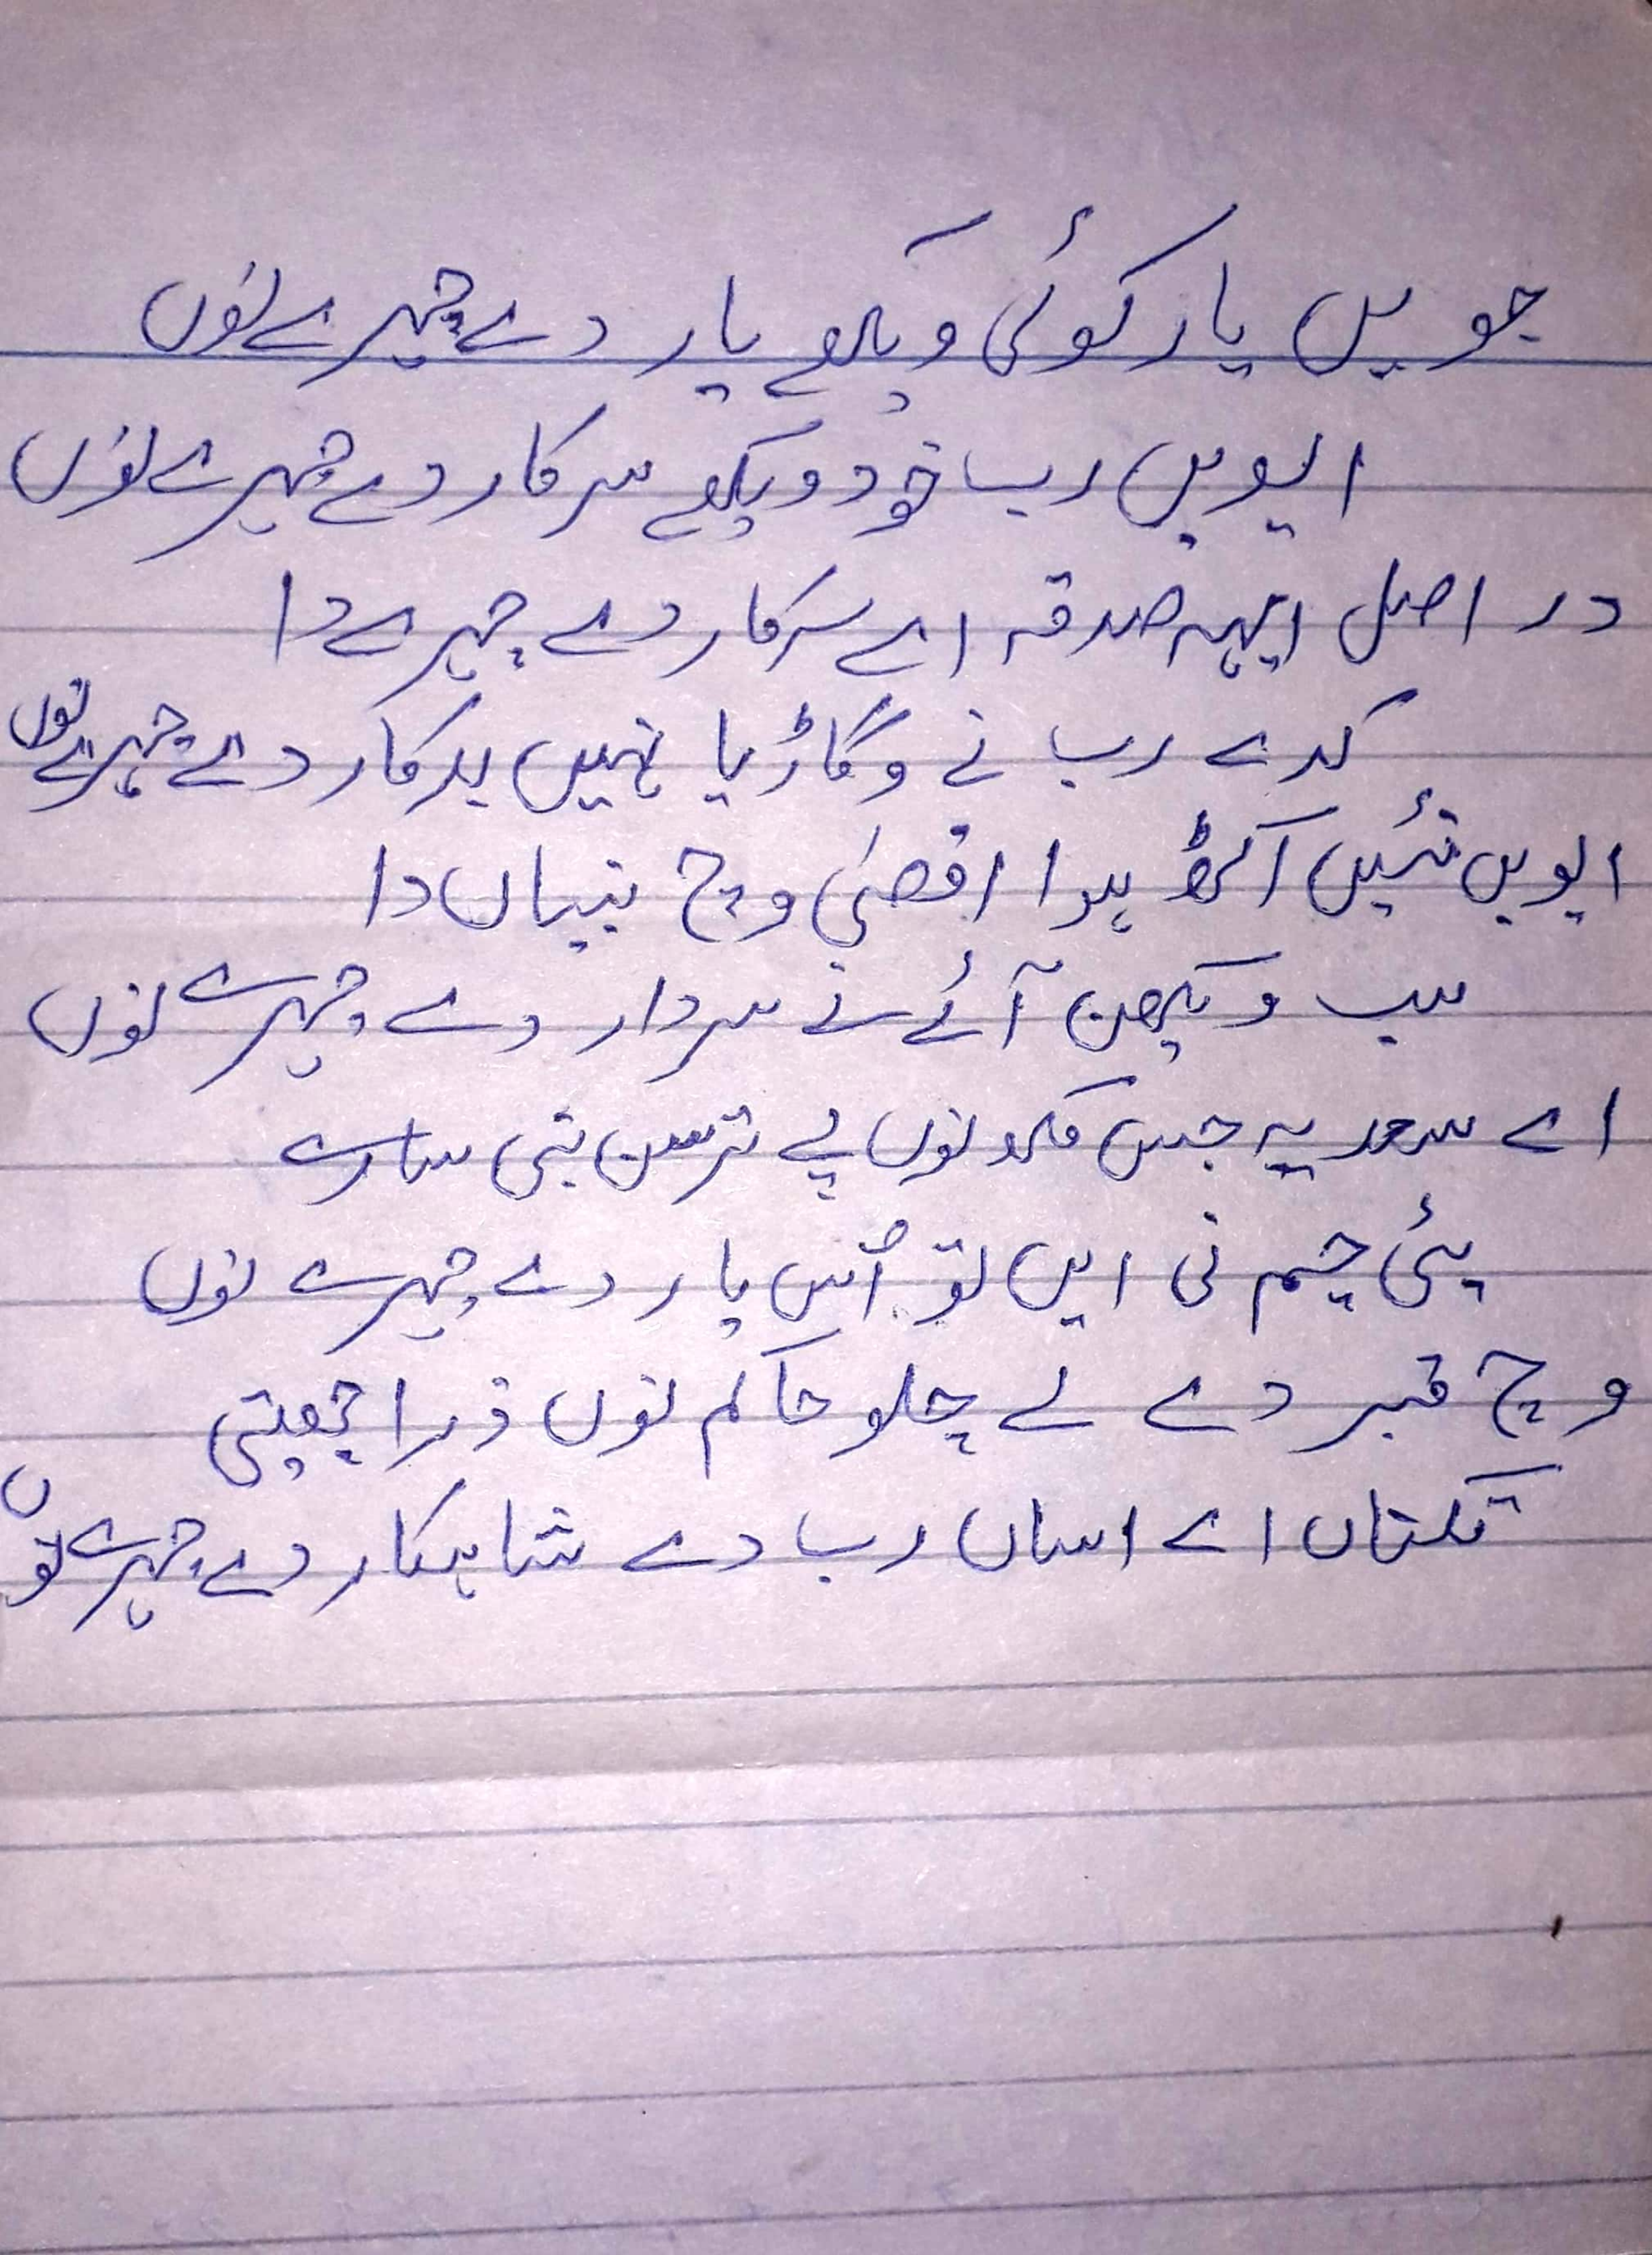 جویں یار کوئی ویکھے یار دے چہرے نوں
ایویں رب خود ویکھے سرکار دے چہرے نوں
در اصل ایہہ صدقہ اے سرکار دے چہرے دا
کدے رب نے وگاڑیا نہیں بدکار دے چہرے نوں
ایویں نئیں اکٹھ ہوا اقصیٰ وچ نبیاں دا
سب ویکھن آئے نے سردار دے چہرے نوں
اے سعدیہ جس مکھ نوں پے ترسن نبی سارے
پئی چم نی ایں تو اُس یار دے چہرے نوں
وچ قبر دے لے چلو حاکم نوں ذرا چھیتی
تکناں اے اساں رب دے شاہکار دے چہرے نوں